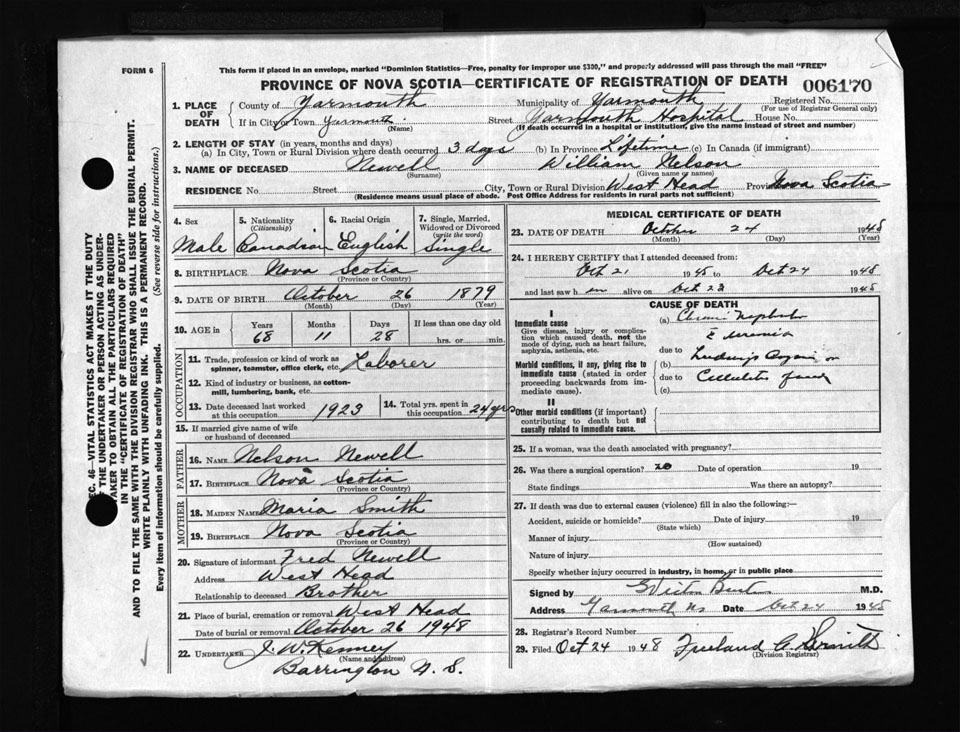 FORM 6
This form if placed in an envelope, marked "Dominion Statistics—Free, penalty for improper use $300," and properly addressed will pass through the mail "FREE"
PROVINCE OF NOVA SCOTIA—CERTIFICATE OF REGISTRATION OF DEATH
006170
1. PLACE OF DEATH County of Yarmouth Municipality of Yarmouth Registered No.
(For use of Registrar General only)
If in City or Town Yarmouth Street Yarmouth Hospital House No.
(Name) (If death occurred in a hospital or institution, give the name instead of street and number)
2. LENGTH OF STAY (in years, months and days)
(a) In City, Town or Rural Division where death occurred 3 days (b) In Province Lifetime (c) In Canada (if immigrant)
3. NAME OF DECEASED Newell William Nelson
(Surname) (Given name or names)
RESIDENCE No. Street City, Town or Rural Division West Head Province Nova Scotia
(Residence means usual place of abode. Post Office Address for residents in rural parts not sufficient)
4. Sex 5. Nationality (Citizenship) 6. Racial Origin 7. Single, Married, Widowed or Divorced (write the word)
Male Canadian English Single
8. BIRTHPLACE Nova Scotia
(Province or Country)
9. DATE OF BIRTH October 26 1879
(Month) (Day) (Year)
10. AGE in Years Months Days If less than one day
68 11 28 hrs. or min.
OCCUPATION
11. Trade, profession or kind of work as spinner, teamster, office clerk, etc. Laborer
12. Kind of industry or business, as cotton-mill, lumbering, bank, etc.
13. Date deceased last worked at this occupation 1923
14. Total yrs. spent in this occupation 24 yrs
15. If married give name of wife or husband of deceased
FATHER
16. NAME Nelson Newell
17. BIRTHPLACE Nova Scotia
(Province or Country)
MOTHER
18. MAIDEN NAME Maria Smith
19. BIRTHPLACE Nova Scotia
(Province or Country)
20. Signature of informant Fred Newell
Address West Head
Relationship to deceased Brother
21. Place of burial, cremation or removal West Head
Date of burial or removal October 26 1948
22. UNDERTAKER J. W. Kenney
(Name and address)
Barrington N. S.
MEDICAL CERTIFICATE OF DEATH
23. DATE OF DEATH October 24 1948
(Month) (Day) (Year)
24. I HEREBY CERTIFY that I attended deceased from:
Oct 21 1948 to Oct 24 1948
and last saw h im alive on Oct 23 1948
CAUSE OF DEATH
I
Immediate cause (a)
Give disease, injury or complication which caused death, not the mode of dying, such as heart failure, asphyxia, asthenia, etc.
uremia
due to
Morbid conditions, if any, giving rise to immediate cause (stated in order proceeding backwards from immediate cause). (b)
due to Cellulitis
(c)
II
Other morbid conditions (if important) contributing to death but not causally related to immediate cause.
25. If a woman, was the death associated with pregnancy?
26. Was there a surgical operation? no Date of operation 19
State findings Was there an autopsy?
27. If death was due to external causes (violence) fill in also the following:—
Accident, suicide or homicide? Date of injury 19
(State which)
Manner of injury
(How sustained)
Nature of injury
Specify whether injury occurred in industry, in home, or in public place
Signed by M.D.
Address Yarmouth NS Date Oct 24 1948
28. Registrar's Record Number
29. Filed Oct 24 1948 Freeland A. Smith
(Division Registrar)
SEC. 46—VITAL STATISTICS ACT MAKES IT THE DUTY
THE UNDERTAKER OR PERSON ACTING AS UNDERTAKER TO OBTAIN ALL THE PARTICULARS REQUIRED
IN THE "CERTIFICATE OF REGISTRATION OF DEATH"
AND TO FILE THE SAME WITH THE DIVISION REGISTRAR WHO SHALL ISSUE THE BURIAL PERMIT.
WRITE PLAINLY WITH UNFADING INK. THIS IS A PERMANENT RECORD.
Every item of information should be carefully supplied. (See reverse side for instructions.)